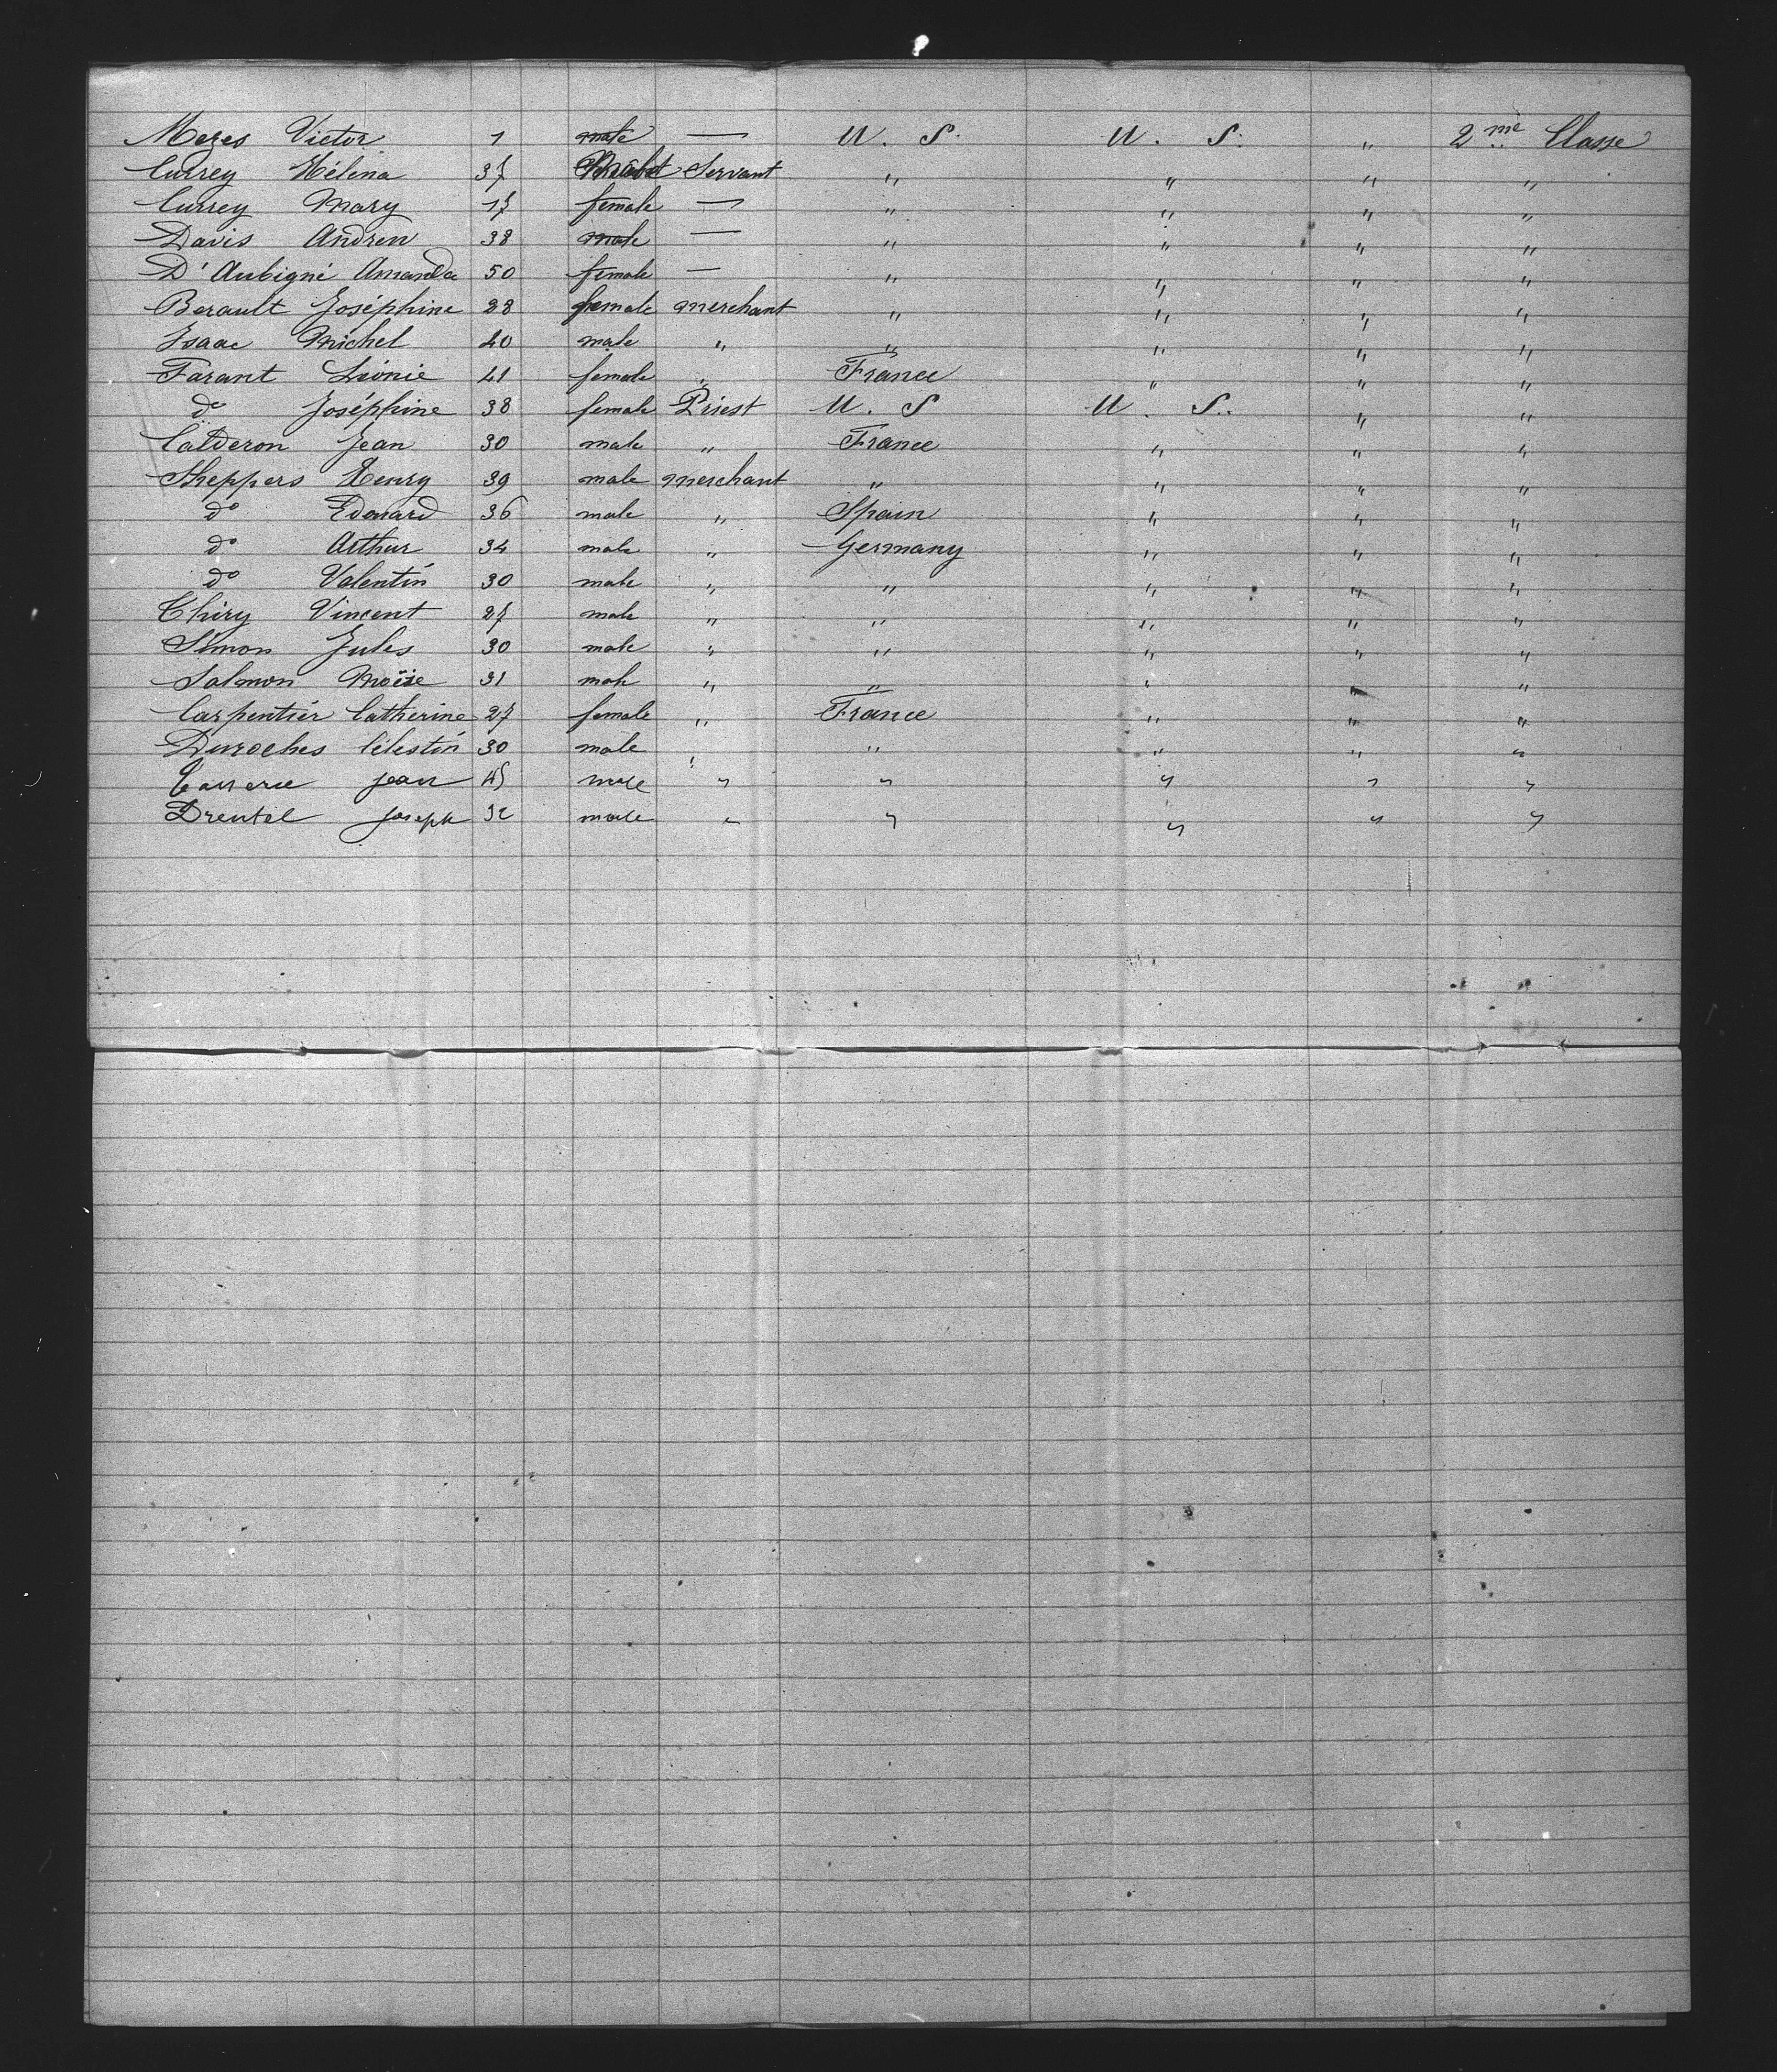 Meres Victor 1 male — U. S. U. S. " 2me Classe
Currey Hélena 37 Servant " " " "
Currey Mary 17 female — " " " "
Davis Andrew 38 male — " " " "
D'Aubigné Amanda 50 female — " " " "
Berault Joséphine 28 female merchant " " " "
Isaac Michel 40 male " " " " "
Farant Léonie 41 female " France " " "
do Joséphine 38 female Priest U. S U. S. " "
Calderon Jean 30 male " France " " "
Sheppers Henry 39 male merchant " " " "
do Edouard 36 male " Spain " " "
do Arthur 34 male " Germany " " "
do Valentin 30 male " " " " "
Thiry Vincent 27 male " " " " "
Simon Jules 30 male " " " " "
Salmon Moïse 31 male " " " " "
Carpentier Catherine 27 female " France " " "
Duroches Célestin 30 male " " " " "
jean 45 male " " " " "
Drentel joseph 32 male " " " " "